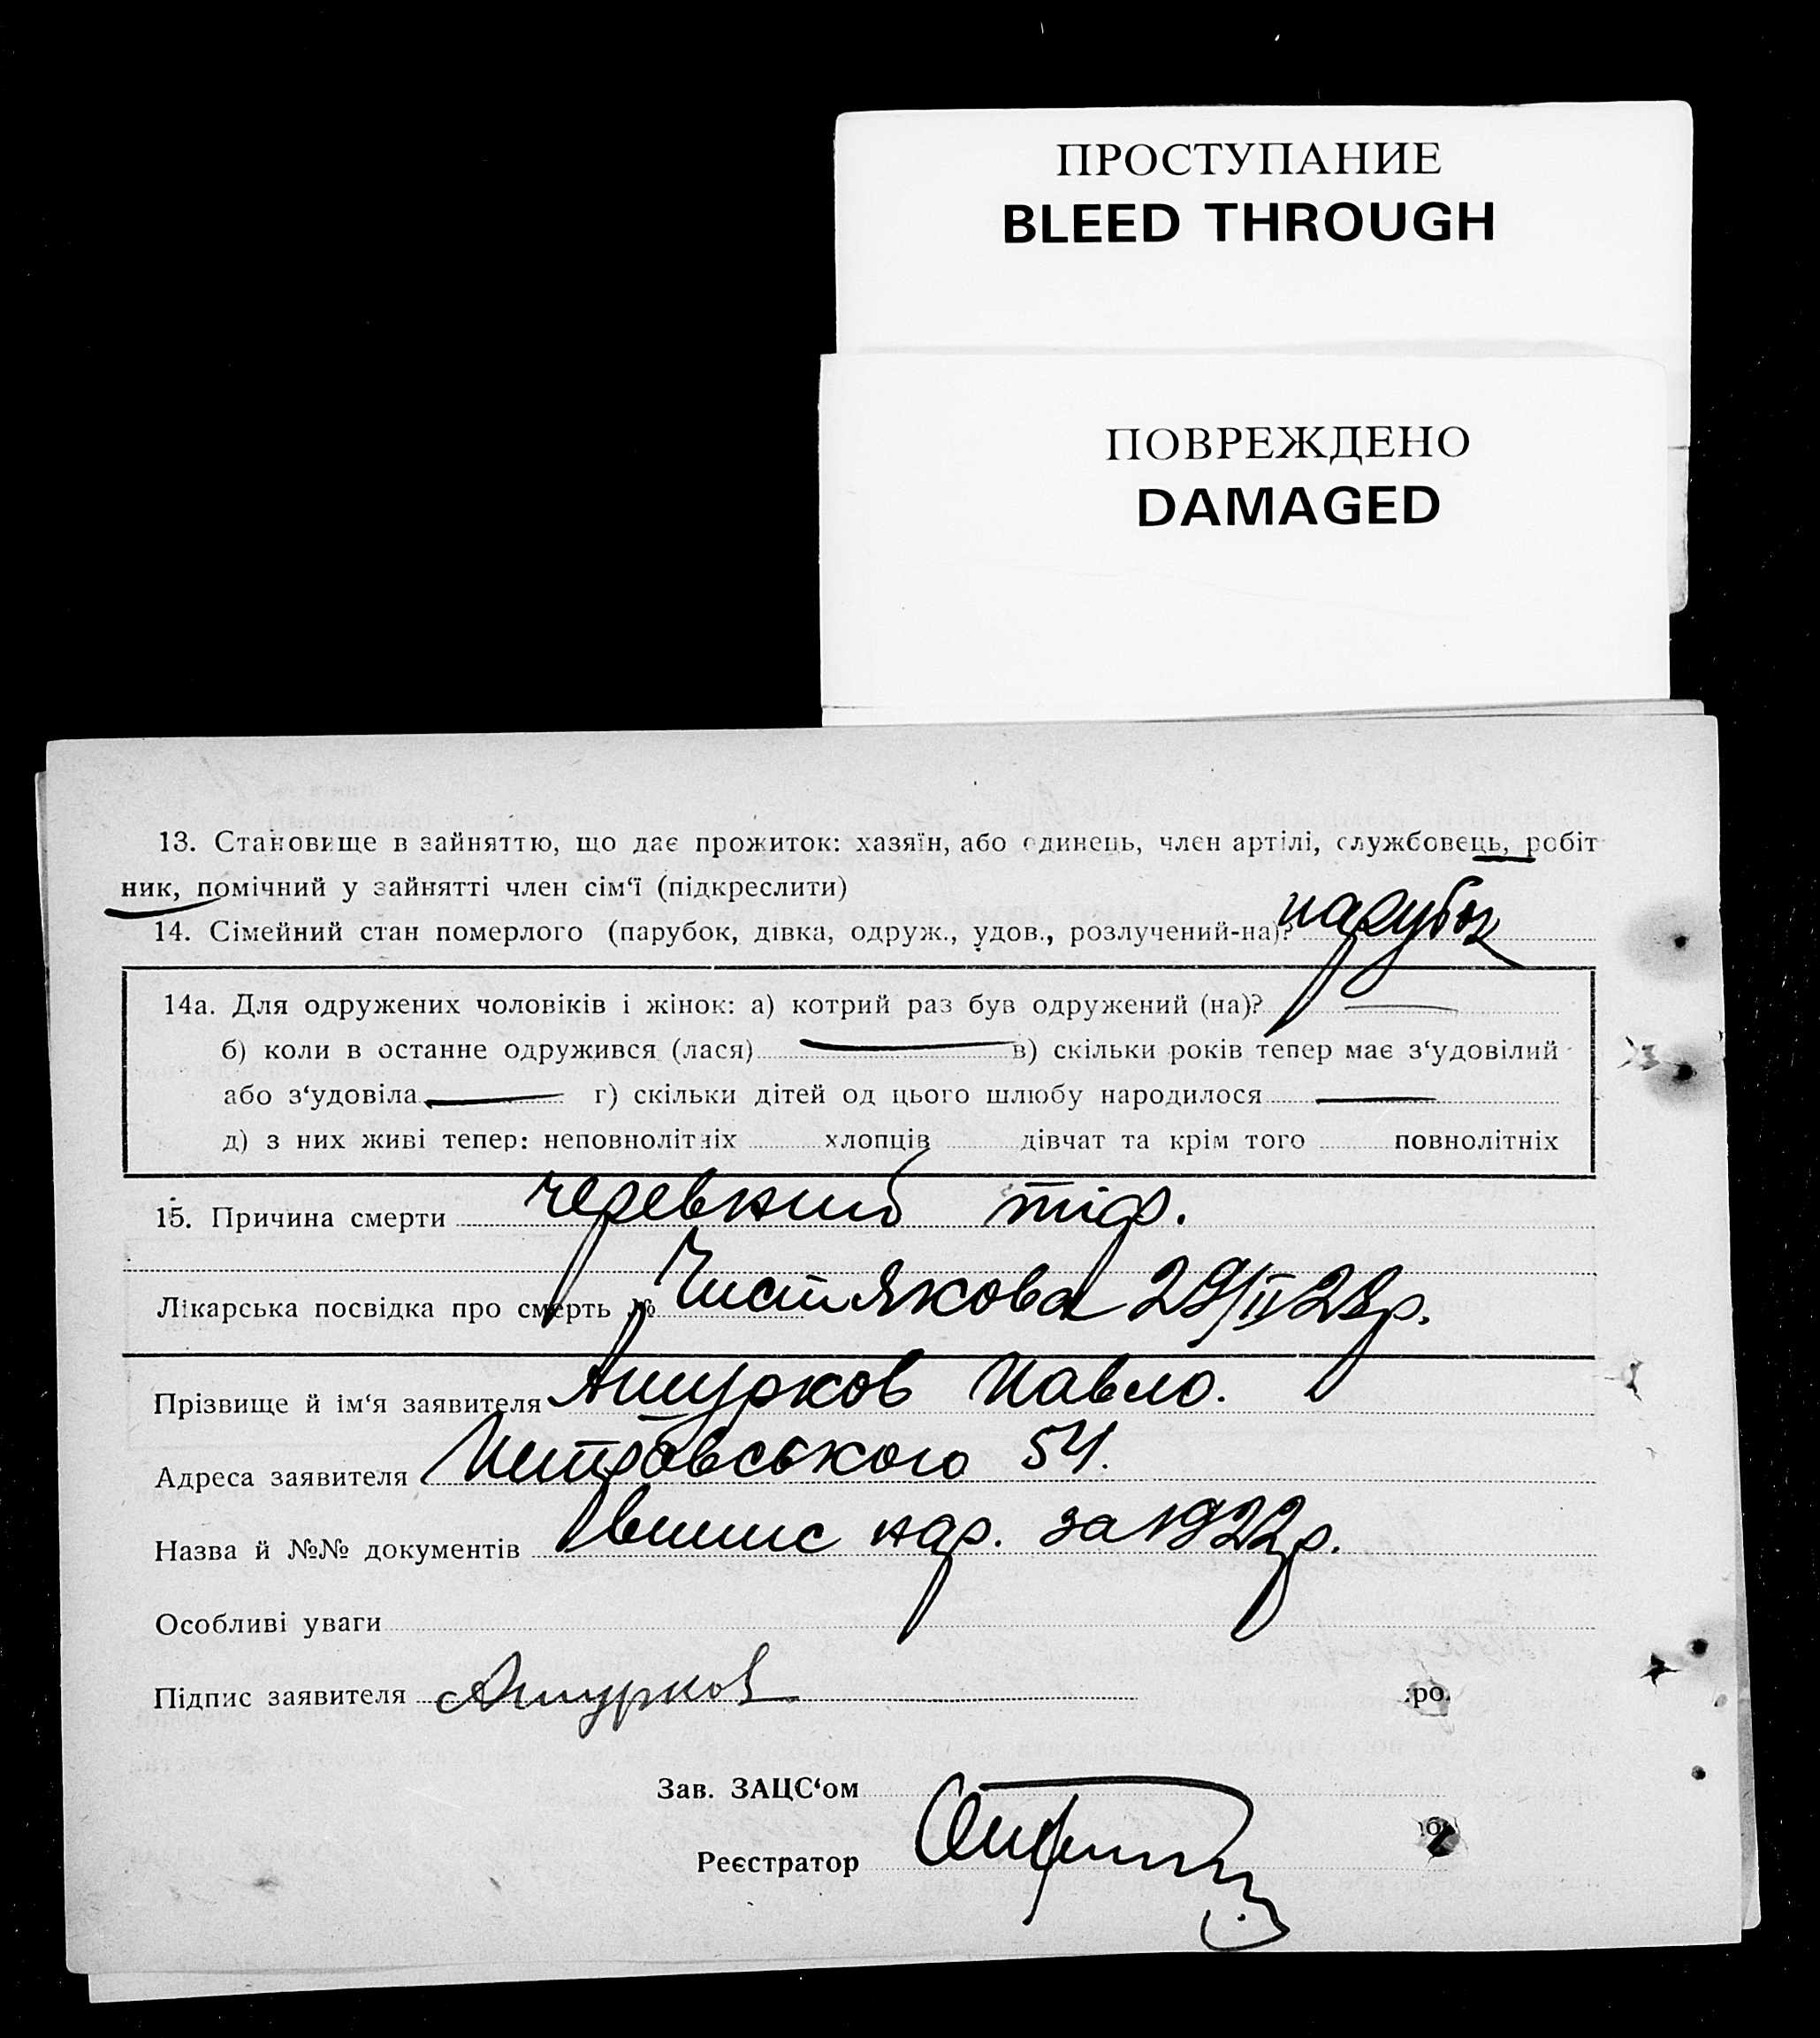 ПРОСТУПАНИЕ
BLEED THROUGH
ПОВРЕЖДЕНО
DAMAGED
13. Становище в зайняттю, що дає прожиток: хазяїн, або одинець, член артілі, службовець, робіт
ник, помічний у зайнятті член сім‘ї (підкреслити)
14. Сімейний стан померлого (парубок, дівка, одруж., удов., розлучений-на)? парубок
14а. Для одружених чоловіків і жінок: а) котрий раз був одружений (на)?
б) коли в останне одружився (лася) в) скільки років тепер має з‘удовілий
або з‘удовіла г) скільки дітей од цього шлюбу народилося
д) з них живі тепер: неповнолітніх хлопців дівчат та крім того повнолітніх
15. Причина смерти черевний тіф.
Лікарська посвідка про смерть № Чистякова 29/II 28р.
Прізвище й ім‘я заявителя Ашурков Павло.
Адреса заявителя Петровського 54.
Назва й №№ документів Випис нар. за 1922р.
Особливі уваги
Підпис заявителя Ашурков
Зав. ЗАЦС‘ом
Реєстратор